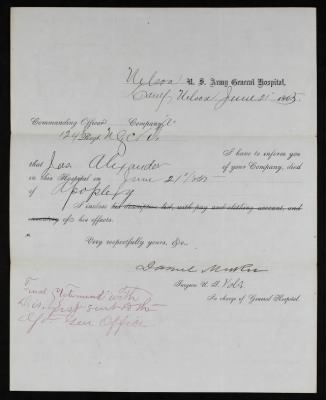 Nelson U. S. Army General Hospital,
Camp Nelson June 21" 1865.
Commanding Officer Company "A"
124 Regt. U S C
I have to inform you
that Jas Alexander of your Company, died
in this Hospital on June 21"/65
of Apoplexy
I inclose his descriptive list, with pay and clothing account, and
inventory of his effects.
Very respectfully yours, &c.
Daniel
Surgeon U. S. Vols
In charge of General Hospital.
Final Statement with
Dis. list sent to the
Adjt. Gen Office